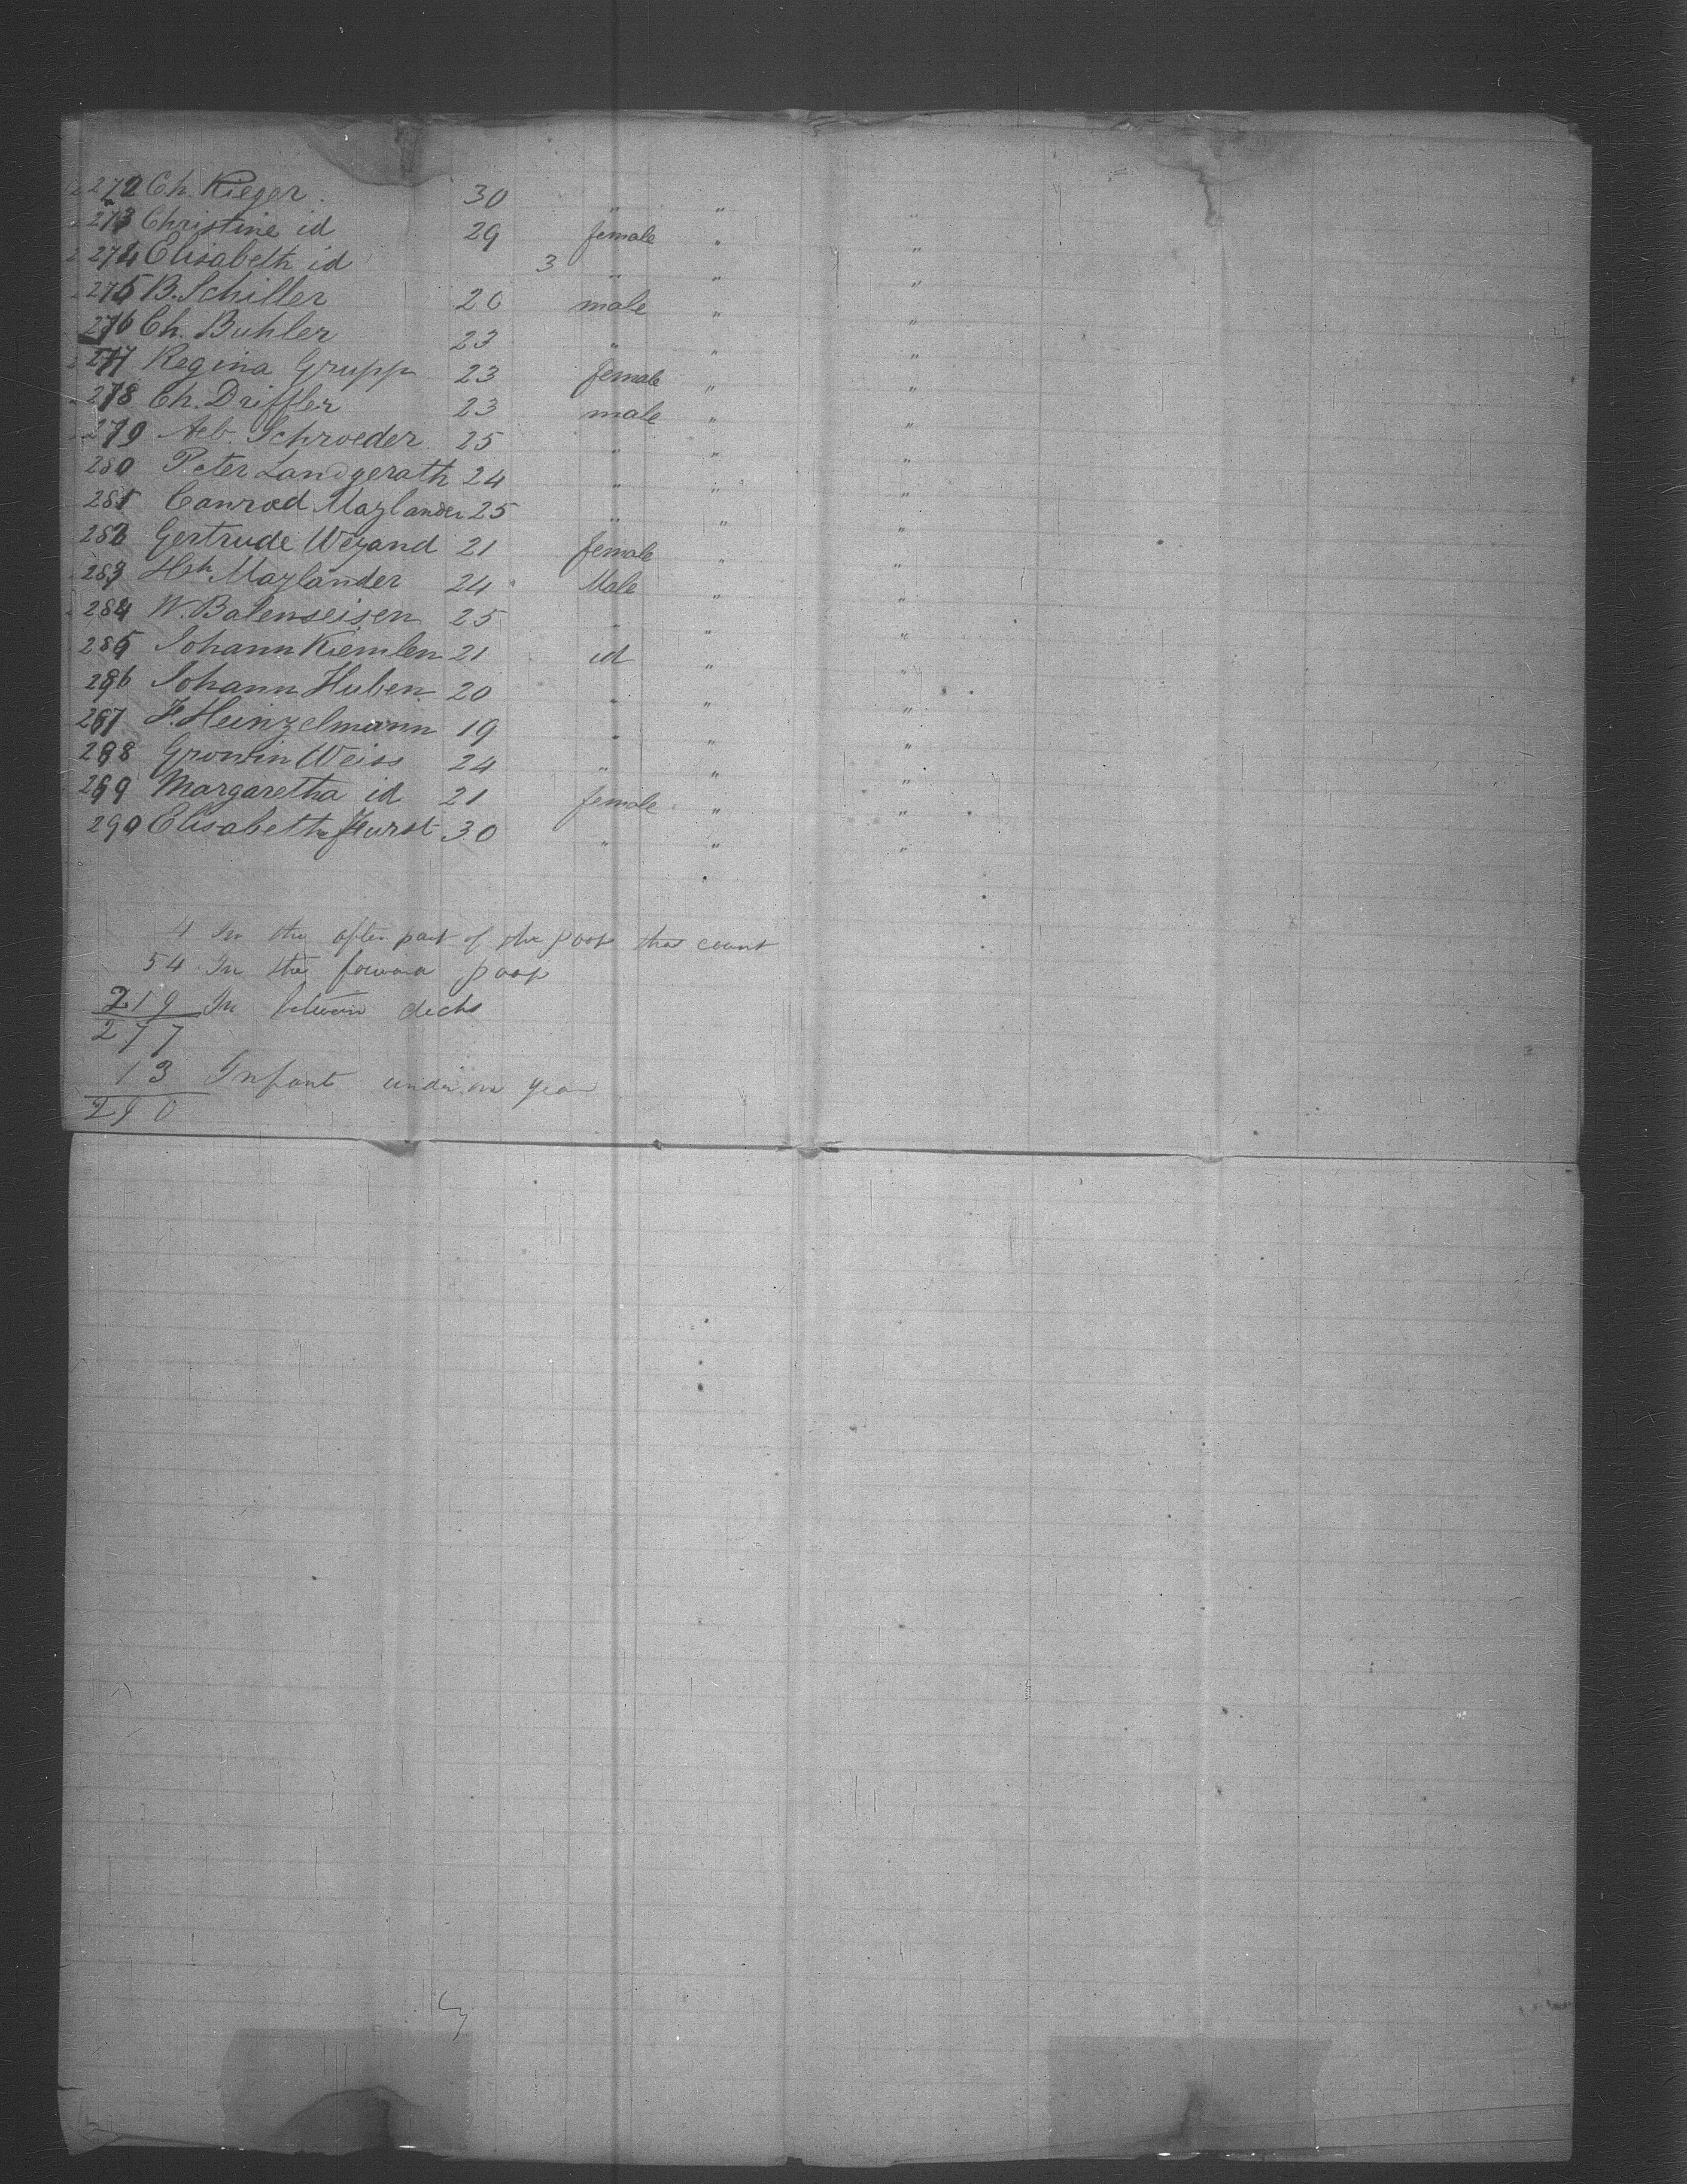 272 Ch. Rieger. 30 " " "
273 Christine id 29 female " "
274 Elisabeth id 3 " " "
275 B. Schiller 20 male " "
276 Ch. Buhler 23 " " "
277 Regina Grupp 23 female " "
278 Ch. Driffler 23 male " "
279 Schroeder 25 " " "
280 Peter Landgerath 24 " " "
281 Conrad Maylander 25 " " "
282 Gertrude Weyand 21 female " "
283 Hch Maylander 24 Male " "
284 W. Balenseisen 25 " " "
285 Johann Kiemlen 21 id " "
286 Johann Huben 20 " " "
287 F. Heinzelmann 19 " " "
288 Weiss 24 " " "
289 Margaretha id 21 female " "
290 Elisabeth Hurst 30 " " "
4 In the after part of the poop that count
54 In the forward poop
219 In between decks
277
13 Infants under one year
290